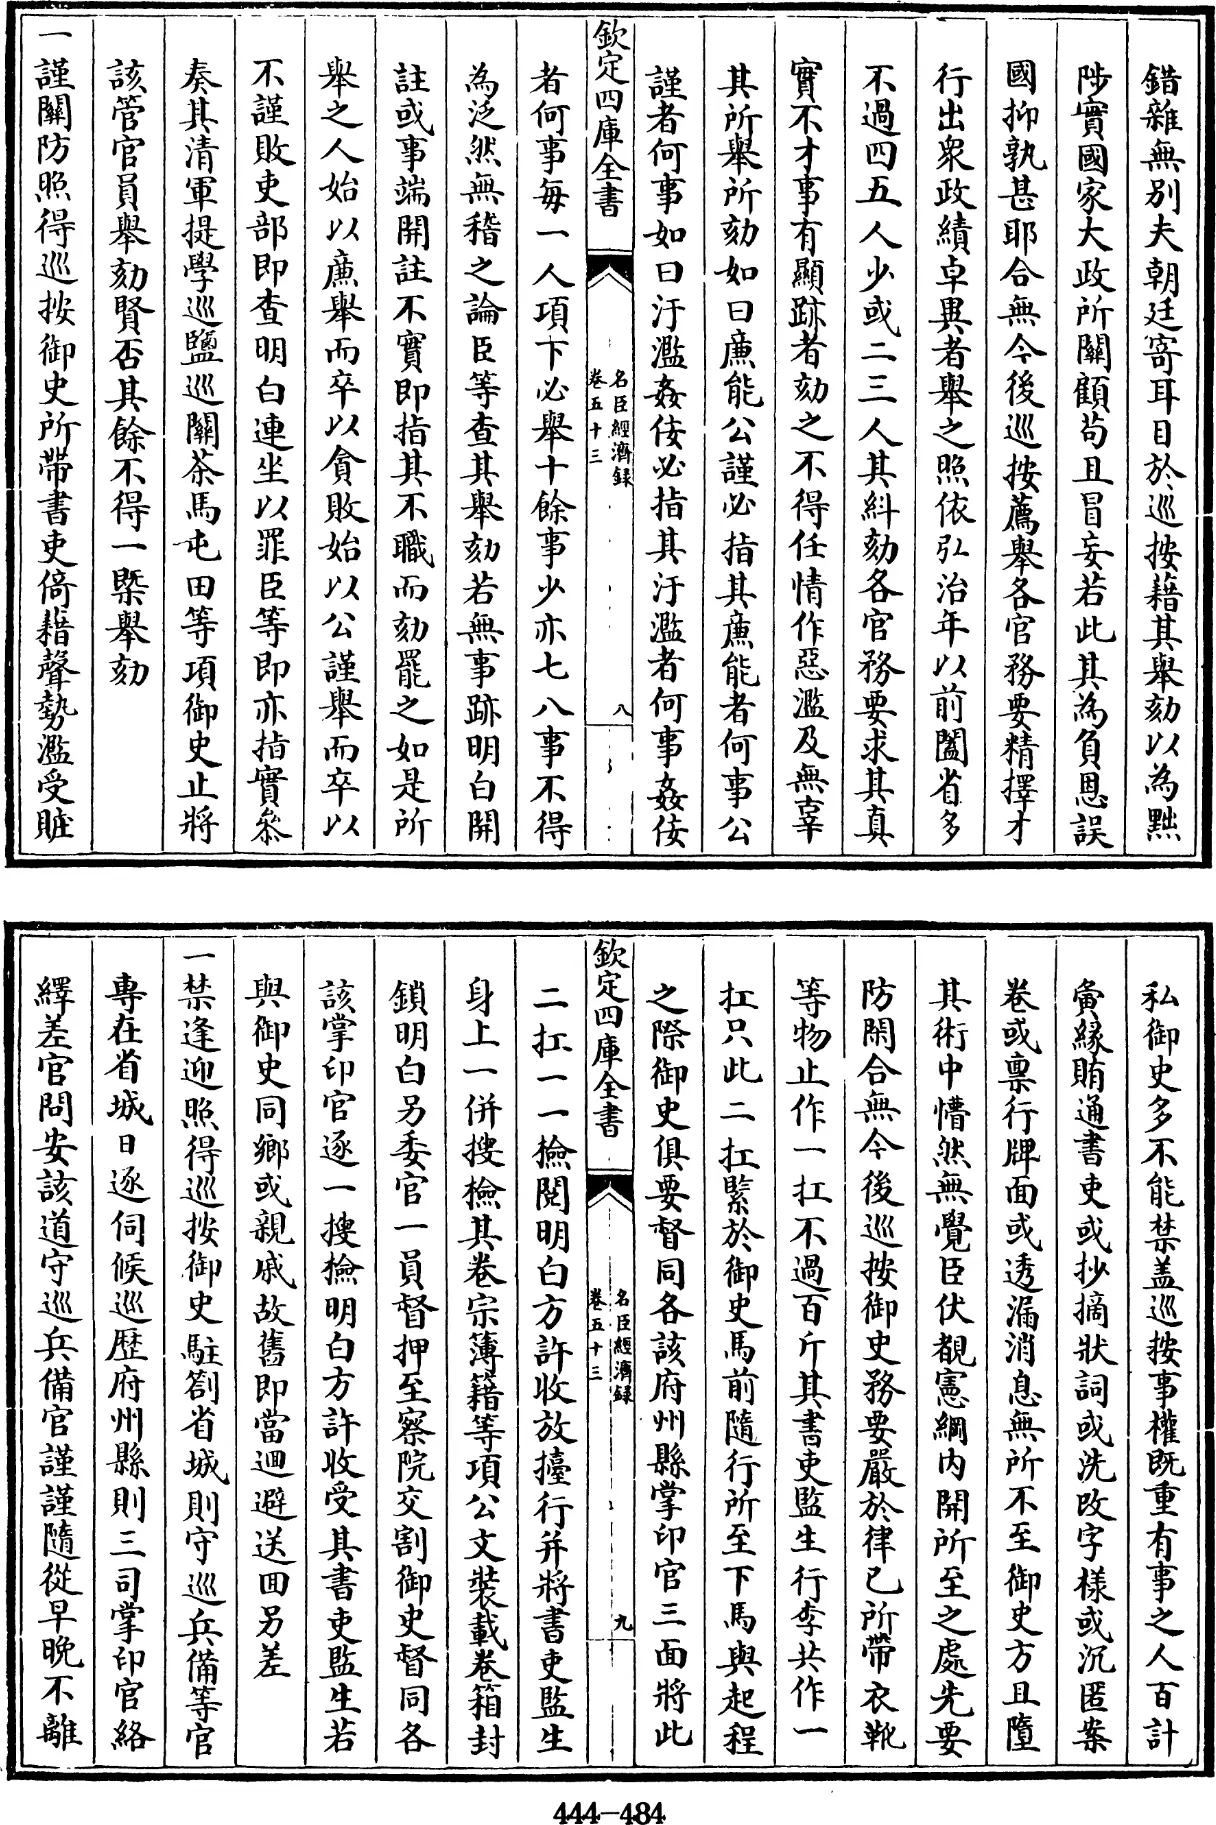 錯雜無別夫朝廷寄耳目於巡按藉其舉劾以為黜
陟實國家大政所關顧苟且冒妄若此其為負恩誤
國抑孰甚耶合無今後巡按薦舉各官務要精擇才
行出衆政績卓異者舉之照依弘治年以前闔省多
不過四五人少或二三人其糾劾各官務要求其真
實不才事有顯跡者劾之不得任情作惡濫及無辜
其所舉所劾如曰廉能公謹必指其廉能者何事公
謹者何事如曰汙濫姦佞必指其汙濫者何事姦佞
欽定四庫全書
名臣經濟録
卷五十三
八
者何事每一人項下必舉十餘事少亦七八事不得
為泛然無稽之論臣等查其舉劾若無事跡明白開
註或事端開註不實即指其不職而劾罷之如是所
舉之人始以廉舉而卒以貪敗始以公謹舉而卒以
不謹敗吏部即查明白連坐以罪臣等即亦指實叅
奏其清軍提學巡鹽巡關茶馬屯田等項御史止將
該管官員舉劾賢否其餘不得一槩舉劾
一謹關防照得巡按御史所帶書吏倚藉聲勢濫受贓
私御史多不能禁盖巡按事權既重有事之人百計
夤縁賄通書吏或抄摘狀詞或洗改字樣或沉匿案
卷或禀行牌面或透漏消息無所不至御史方且墮
其術中懵然無覺臣伏覩憲綱内開所至之處先要
防閑合無今後巡按御史務要嚴於律己所帶衣靴
等物止作一扛不過百斤其書吏監生行李共作一
扛只此二扛緊於御史馬前隨行所至下馬與起程
之際御史俱要督同各該府州縣掌印官三面將此
欽定四庫全書
名臣經濟録
卷五十三
九
二扛一一檢閱明白方許收放擡行并將書吏監生
身上一併搜檢其卷宗簿籍等項公文裝載卷箱封
鎖明白另委官一員督押至察院交割御史督同各
該掌印官逐一搜檢明白方許收受其書吏監生若
與御史同鄉或親戚故舊即當迴避送回另差
一禁逢迎照得巡按御史駐劄省城則守巡兵備等官
專在省城日逐伺候巡歴府州縣則三司掌印官絡
繹差官問安該道守巡兵備官謹謹隨從早晚不離
444-484